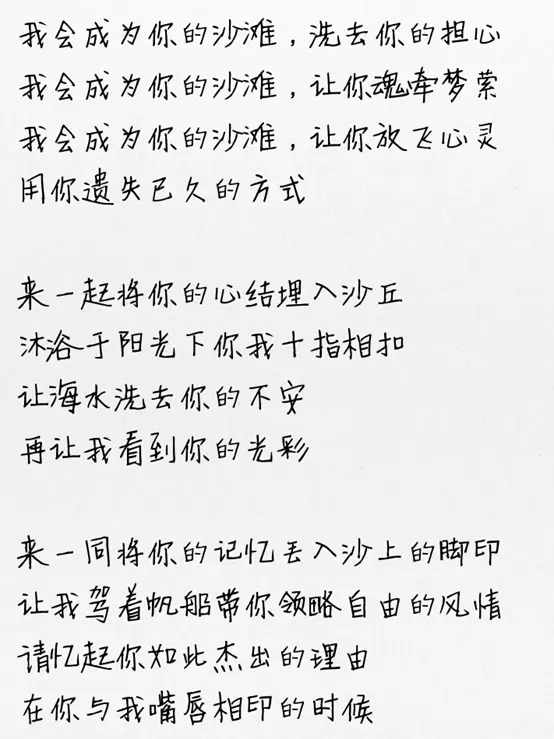 我会成为你的沙滩，洗去你的担心
我会成为你的沙滩，让你魂牵梦萦
我会成为你的沙滩，让你放飞心灵
用你遗失已久的方式
来一起将你的心结埋入沙丘
沐浴于阳光下你我十指相扣
让海水洗去你的不安
再让我看到你的光彩
来一同将你的记忆丢入沙上的脚印
让我驾着帆船带你领略自由的风情
请忆起你如此杰出的理由
在你与我嘴唇相印的时候